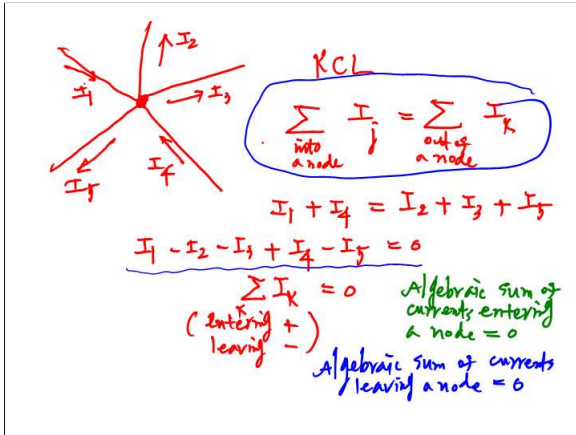 I₂
I₁
I₃
I₅
I₄
KCL
∑ I_j = ∑ I_K
into a node
out of a node
I₁ + I₄ = I₂ + I₃ + I₅
I₁ - I₂ - I₃ + I₄ - I₅ = 0
∑ I_K = 0
K
(entering +
leaving -)
Algebraic sum of
currents entering
a node = 0
Algebraic sum of currents
leaving a node = 0